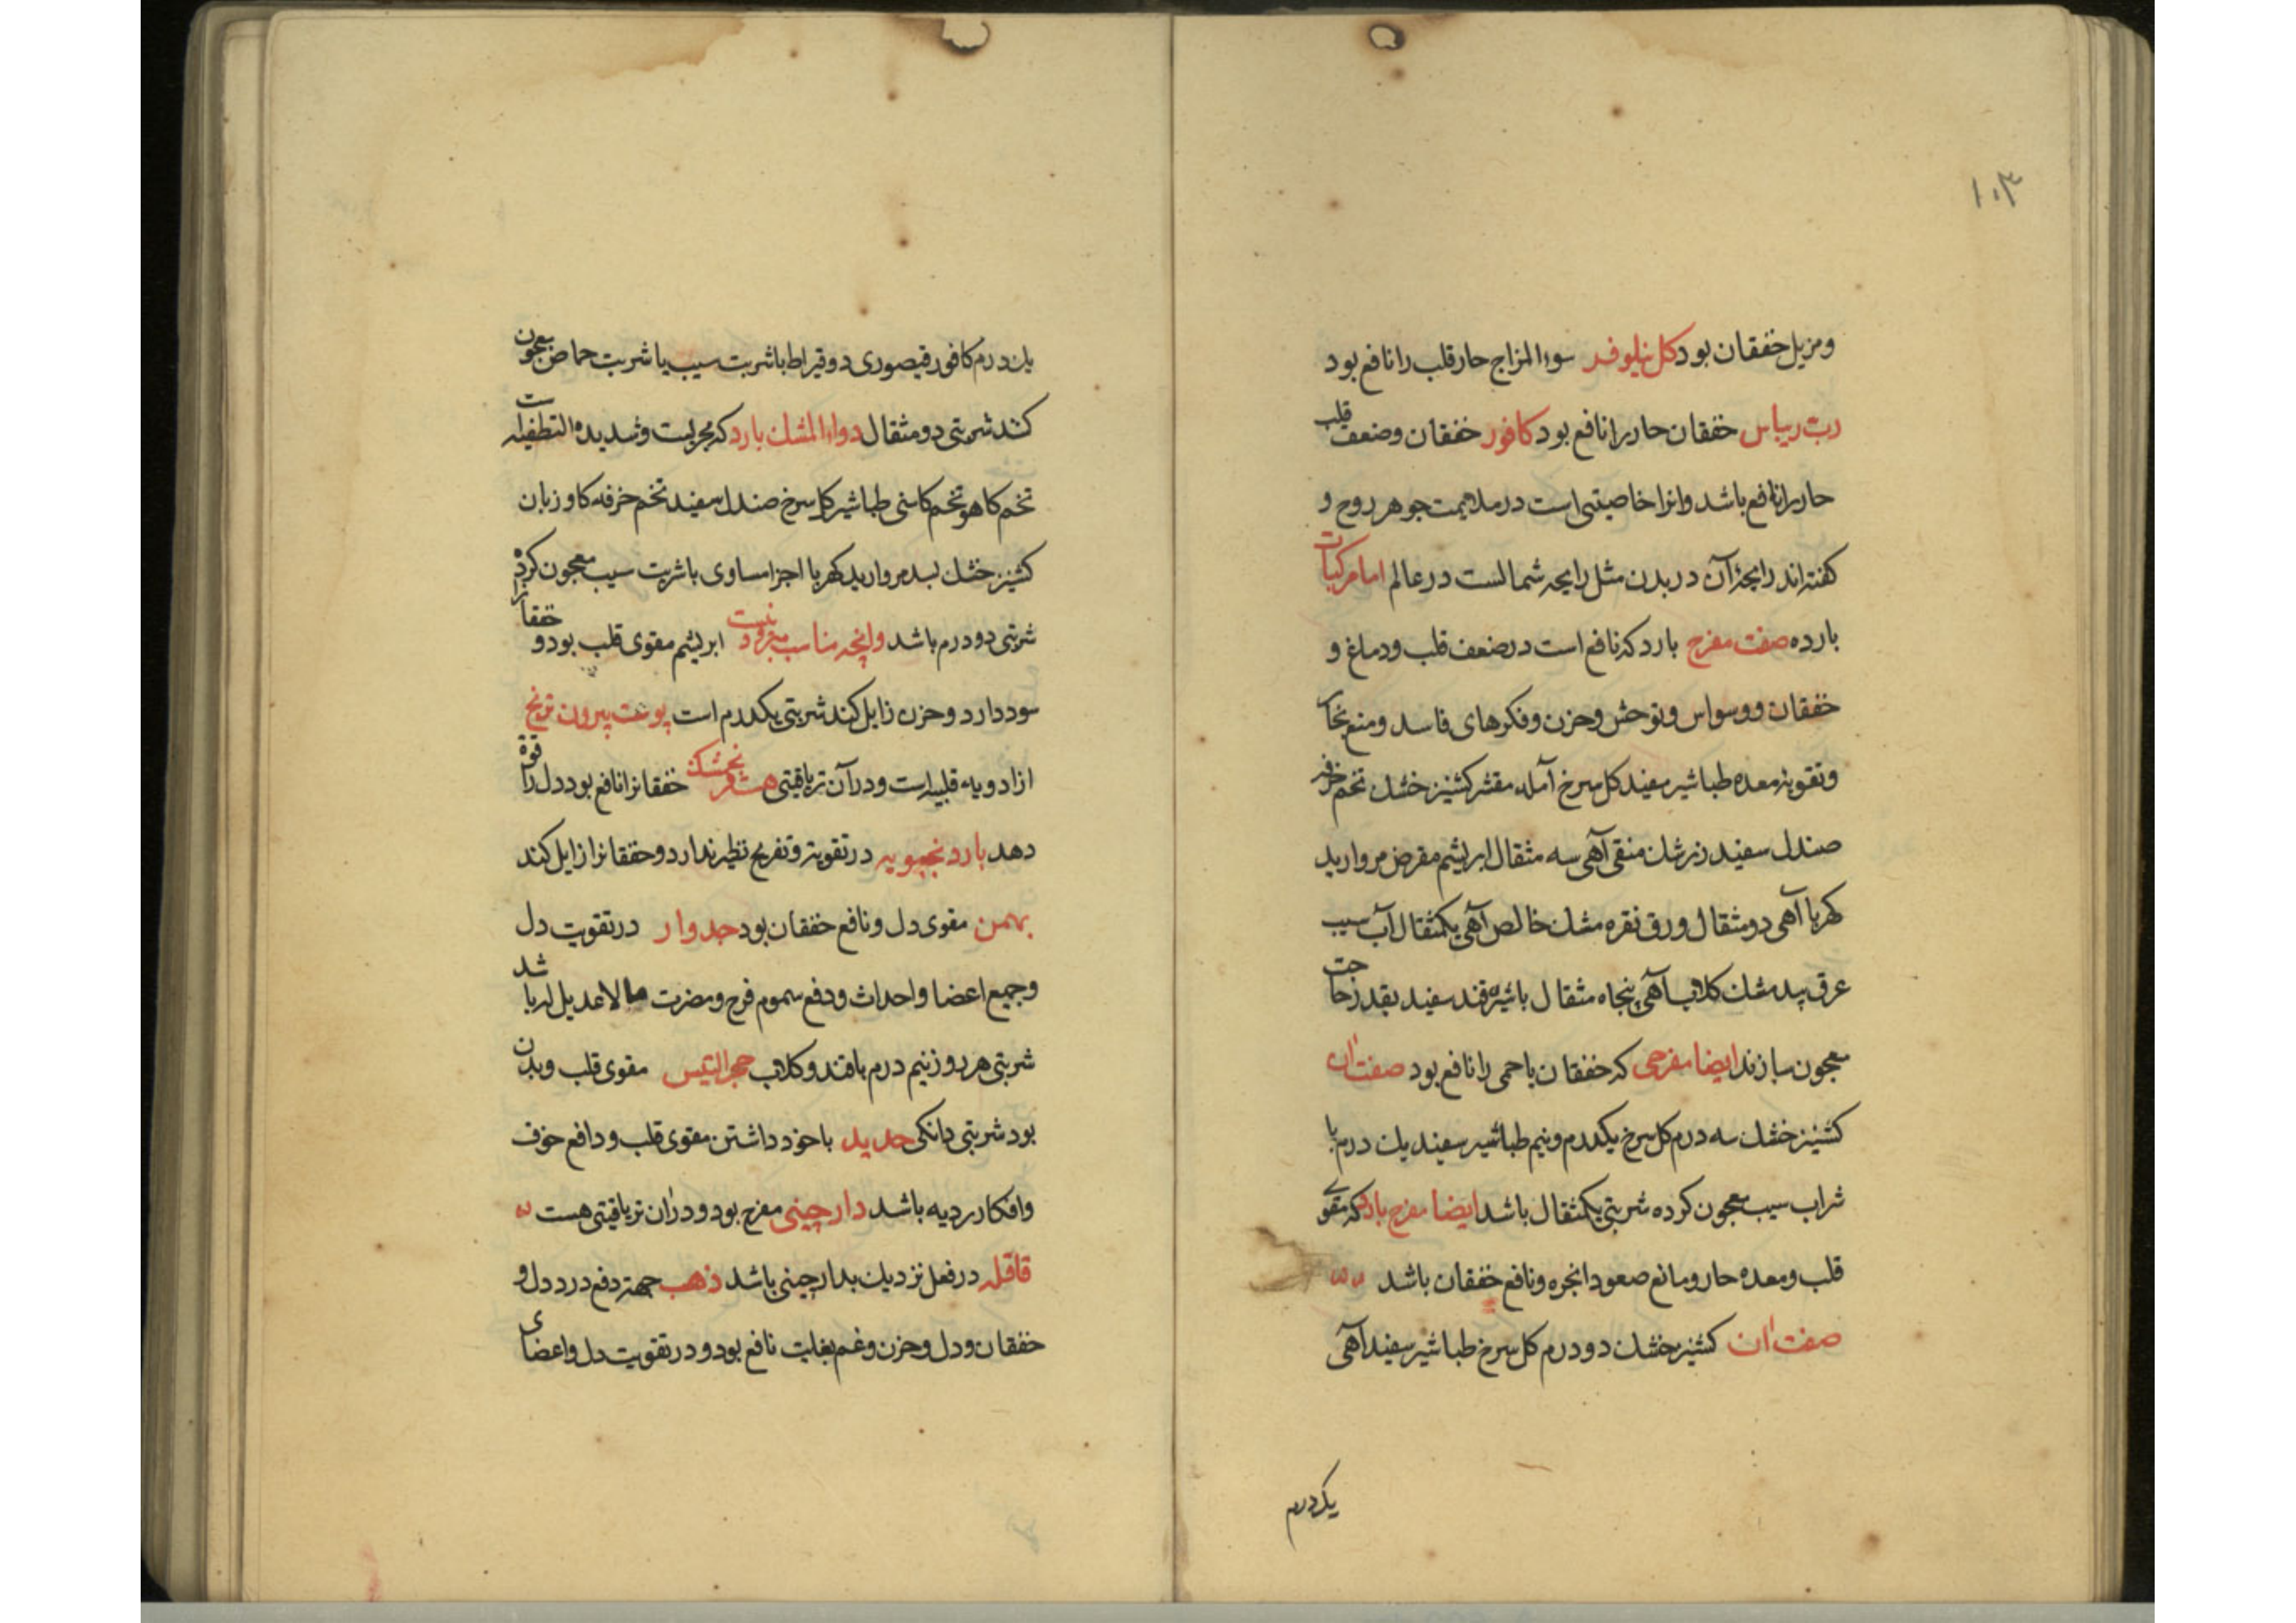 ۱۰۳
ومزیل خفقان بود کل نیلوفر سوء المزاج حار قلب را نافع بود
رب ریباس خفقان حار را نافع بود کافور خفقان وضعف قلب
حار را نافع باشد وانرا خاصیتی است در ملایمت جوهر روح و
کفته اند رایحهٔ آن در بدن مثل رایحه شمالست در عالم اما مرکبات
بارده صفت مفرح بارد که نافع است در ضعف قلب ودماغ و
خفقان ووسواس وتوحش وحزن وفکرهای فاسد ومنع بخار
وتقویة معده طباشیر سفید کل سرخ آمله مقشر کشنیز خشك تخم خرفه
صندل سفید زرشك منقی آهی سه مثقال ابریشم مقرض مروارید
کهربا آهی دو مثقال ورق نقره مشك خالص آهی یکمثقال آب سیب
عرق بیدمشك کلاب آهی پنجاه مثقال باشیره قند سفید بقدر حاجت
معجون سازند ایضا مفرحی که خفقان باحمی را نافع بود صفت آن
کشنیز خشك سه درم کل سرخ یکدرم ونیم طباشیر سفید یك درم با
شراب سیب معجون کرده شربتی یکمثقال باشد ایضا مفرح بارد که مقوی
قلب ومعده حار ومانع صعود ابخره ونافع خفقان باشد
صفت آن کشنیز خشك دو درم کل سرخ طباشیر سفید آهی
یکدرم
یك درم کافور قیصوری دو قیراط باشربت سیب یا شربت حماض معجون
کنند شربتی دو مثقال دواء المشك بارد که مجربست وشدیده التطفیه است
تخم کاهو تخم کاسنی طباشیر کل سرخ صندل سفید تخم خرفه کاوزبان
کشنیز خشك بسد مروارید کهربا اجزا مساوی باشربت سیب معجون کرده
شربتی دو درم باشد وانچه مناسب مبرود نیست ابریشم مقوی قلب بود و خفقانرا
سود دارد وحزن زایل کند شربتی یکدرم است پوست بیرون ترنج
از ادویه قلبیه است ودر آن تریاقیتی هست فرنجمشك خفقانرا نافع بود دل را قوة
دهد بادرنجبویه در تقویة وتفریح نظیر ندارد وخفقانرا زایل کند
بهمن مقوی دل ونافع خفقان بود جدوار در تقویت دل
وجمیع اعضا واحداث ودفع سموم فرح ومضرت لاعدیل له باشد
شربتی هر روز نیم درم باقند وکلاب حجر التیس مقوی قلب وبدن
بود شربتی دانکی حدید باخود داشتن مقوی قلب ودافع خوف
وافکار ردیه باشد دارچینی مفرح بود ودران تریاقیتی هست
قاقله در فعل نزدیك بدارچینی باشد ذهب جهة دفع درد دل و
خفقان ودل وحزن وغم بغایت نافع بود ودر تقویت دل واعضای